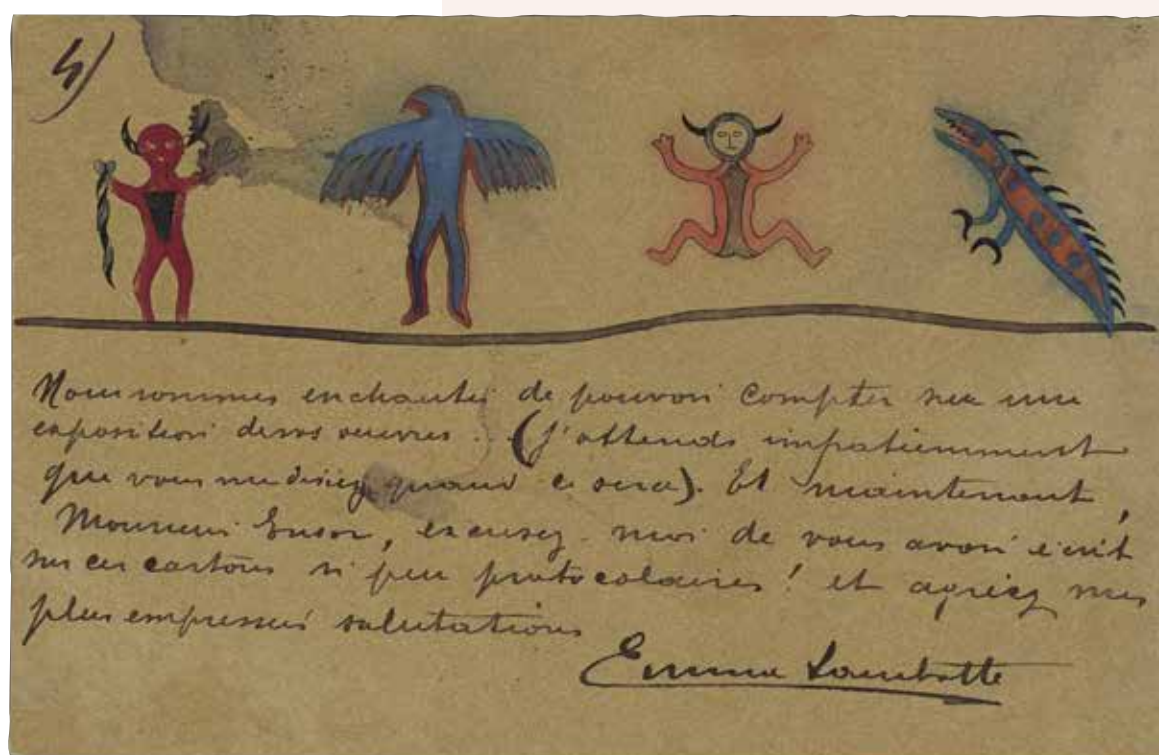 4)
Nous sommes enchantés de pouvoir compter sur une
exposition de vos œuvres. (J'attends impatiemment
que vous me disiez quand ce sera). Et maintenant,
Monsieur Ensor, excusez-moi de vous avoir écrit
sur ces cartons si peu protocolaires! et agréez mes
plus empressées salutations
Emma Lambotte